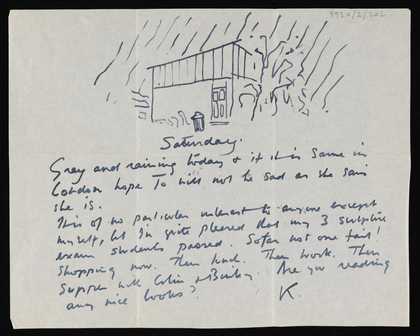 9920/2/202
Saturday.
Grey and raining today & if it is same in
London hope To will not be sad as she says
she is.
This of no particular interest to anyone except
myself, but I'm quite pleased that my 3 sculpture
exam students passed. So far not one fail!
Shopping now. Then lunch. Then work. Then
Supper with Colin & . Are you reading
any nice books?
K.